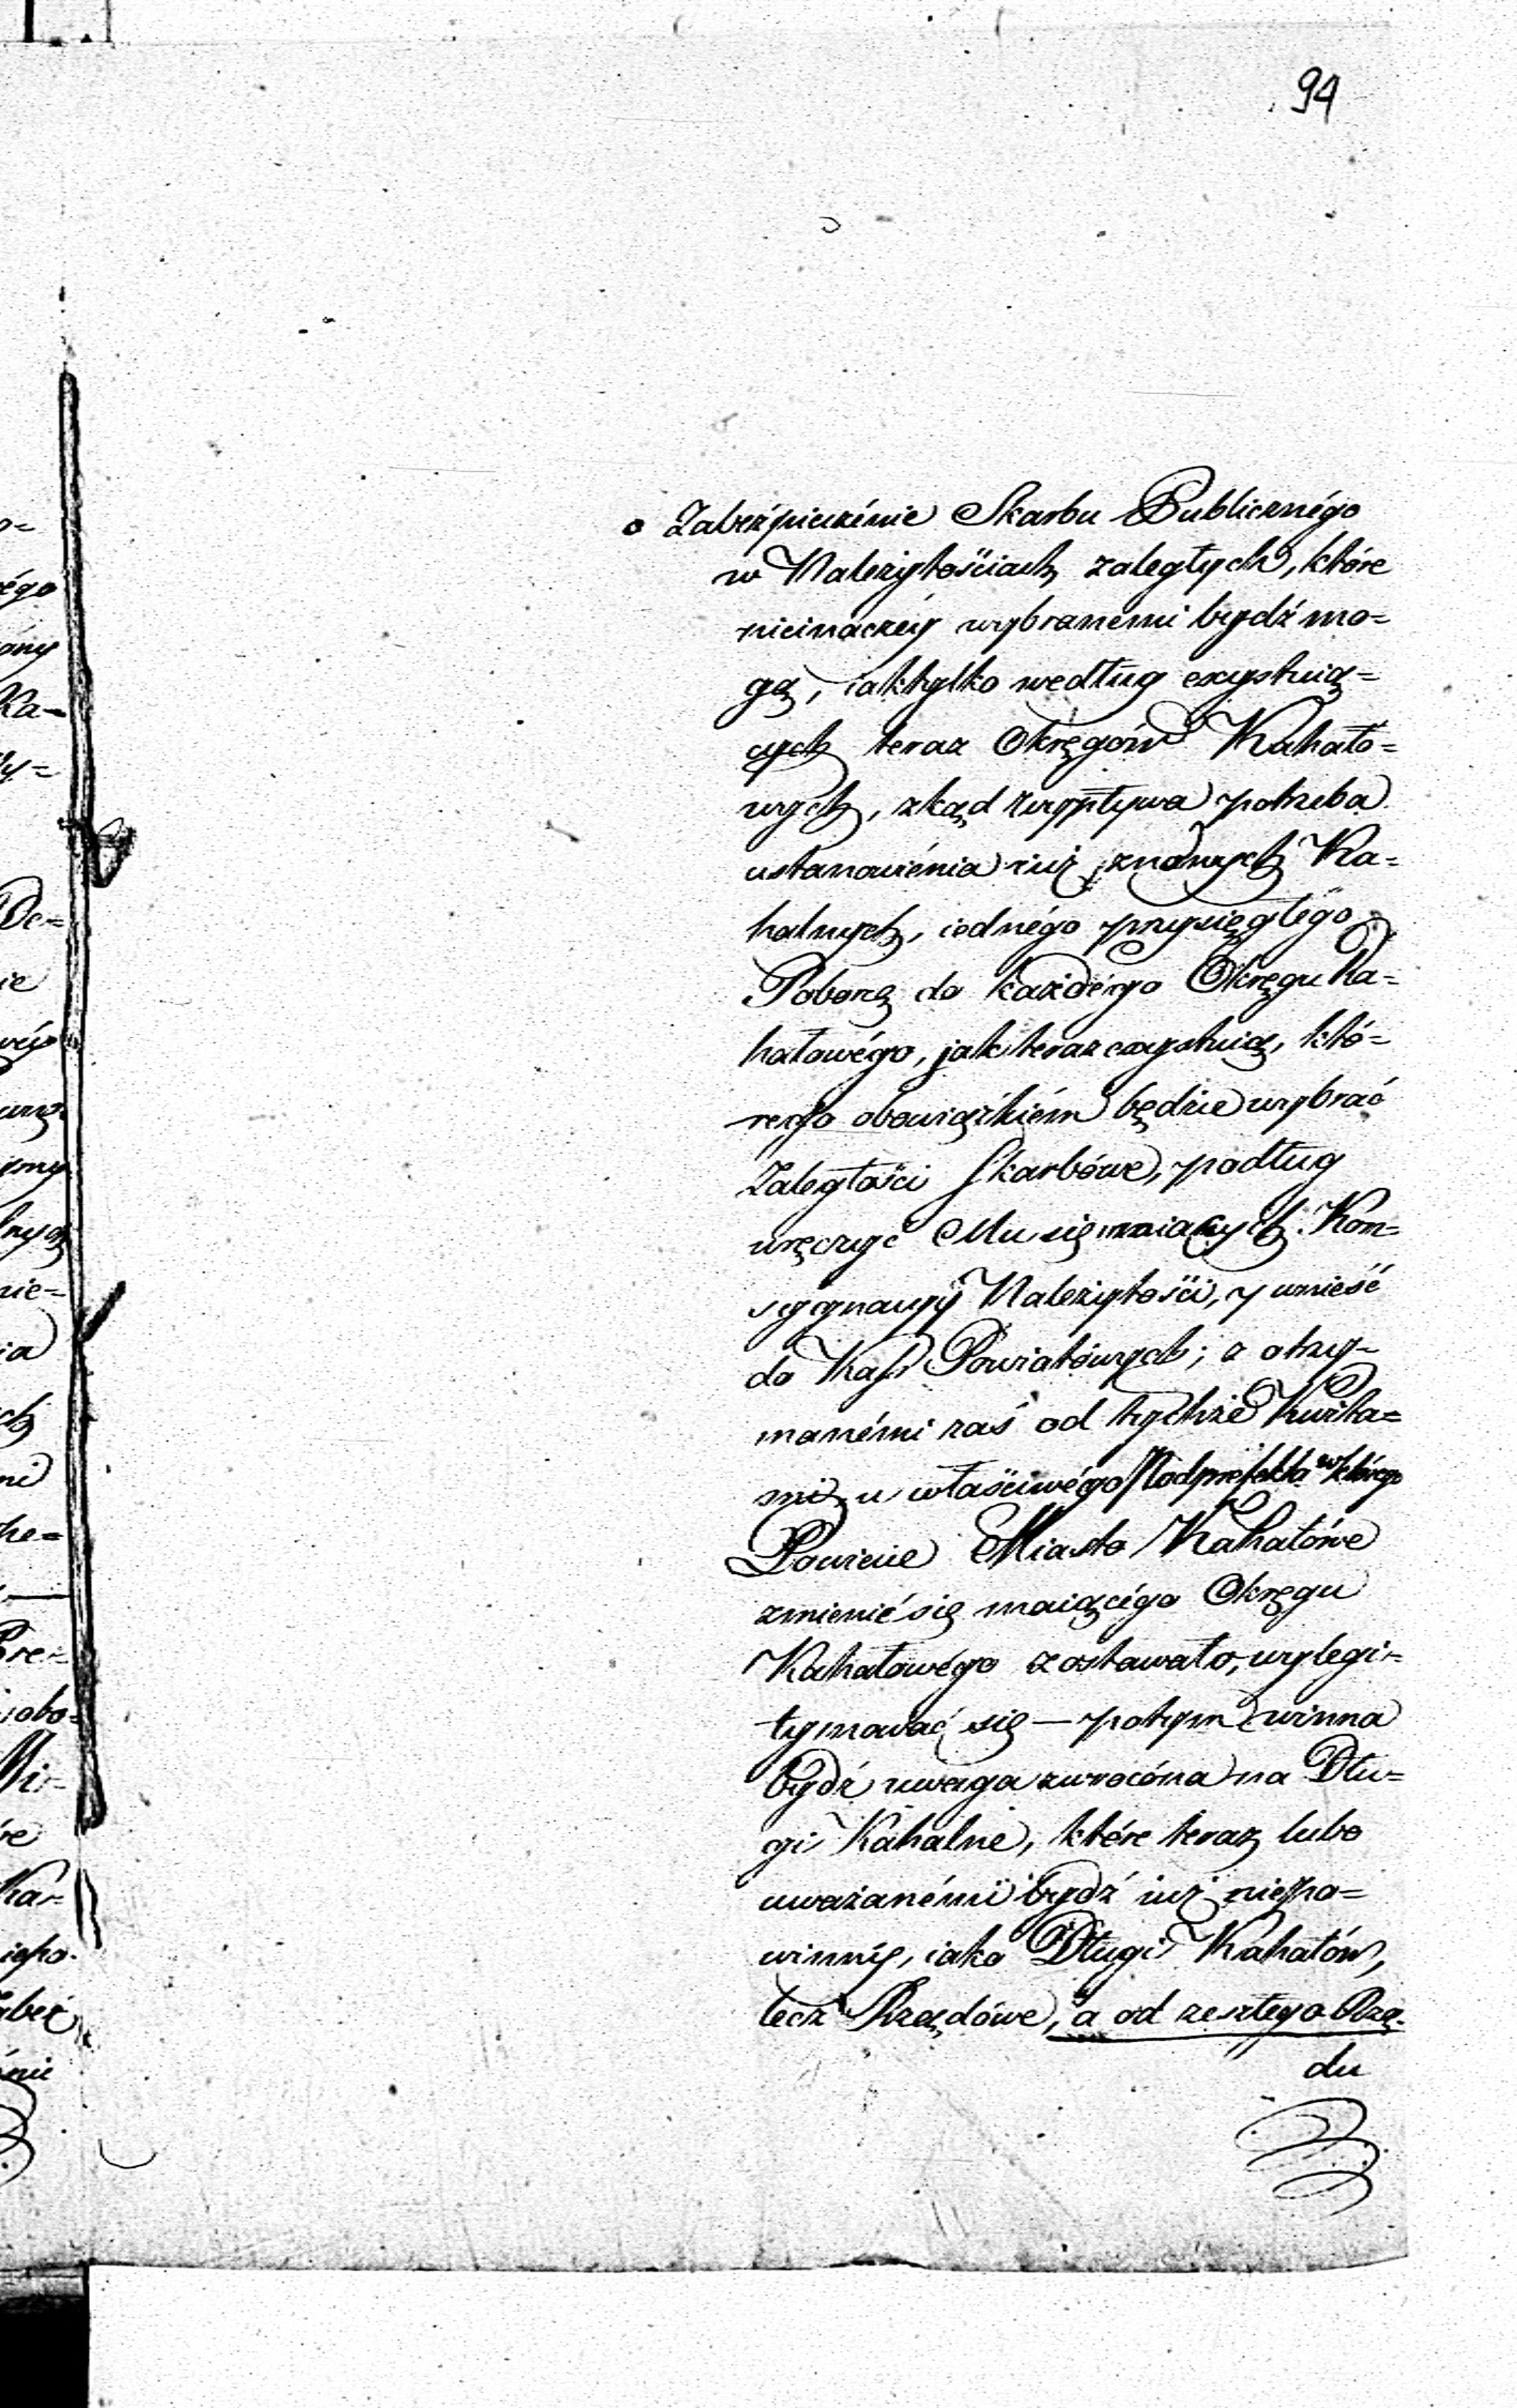 94
o Zabeśpieczénie Skarbu Publicznégo
w Należytościach zaległych, które
nieinaczéy wybranémi bydź mo=
gą, iak tylko według exystuią=
cych teraz Okręgów Kahało=
wych, zkąd wypływa potrzeba
ustanowiénia iuż znanych Ka=
halnych, iednégo przysięgłégo
Poborcę do każdégo Okręgu Ka=
hałowégo, jak teraz exystuią, któ=
rego obowiązkiém będzie wybrać
Zaległości Skarbówe, podług
wręczyć Mu się maiących Kon=
sygnacyi Należytości, y wnieść
do Kass Powiatówych; z otrzy=
manémi zaś od tychże Kwita=
mi, u właściwégo Podprefekta w którego
Powiecie Miasto Kahałówe
zmienić się maiącégo Okręgu
Kahałowégo zostawało, wylegi=
tymować się — potym winna
bydź uwaga zwrócóna na Dłu=
gi Kahalne, które teraz lubo
uważanémi bydź iuż niepo=
winny, iako Długi Kahałów,
lecz Rządówe, a od zeszłego Rzą=
du